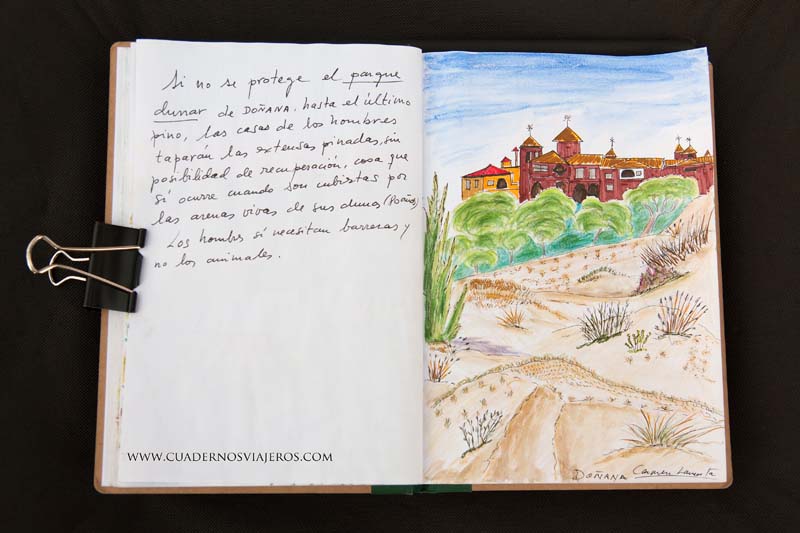 Si no se protege el parque
dunar de DOÑANA, hasta el último
pino, las casas de los hombres
taparán las extensas pinadas, sin
posibilidad de recuperación, cosa que
sí ocurre cuando son cubiertas por
las arenas vivas de sus dunas
Los hombres sí necesitan barreras y
no los animales.
WWW.CUADERNOSVIAJEROS.COM
DOÑANA Carmen